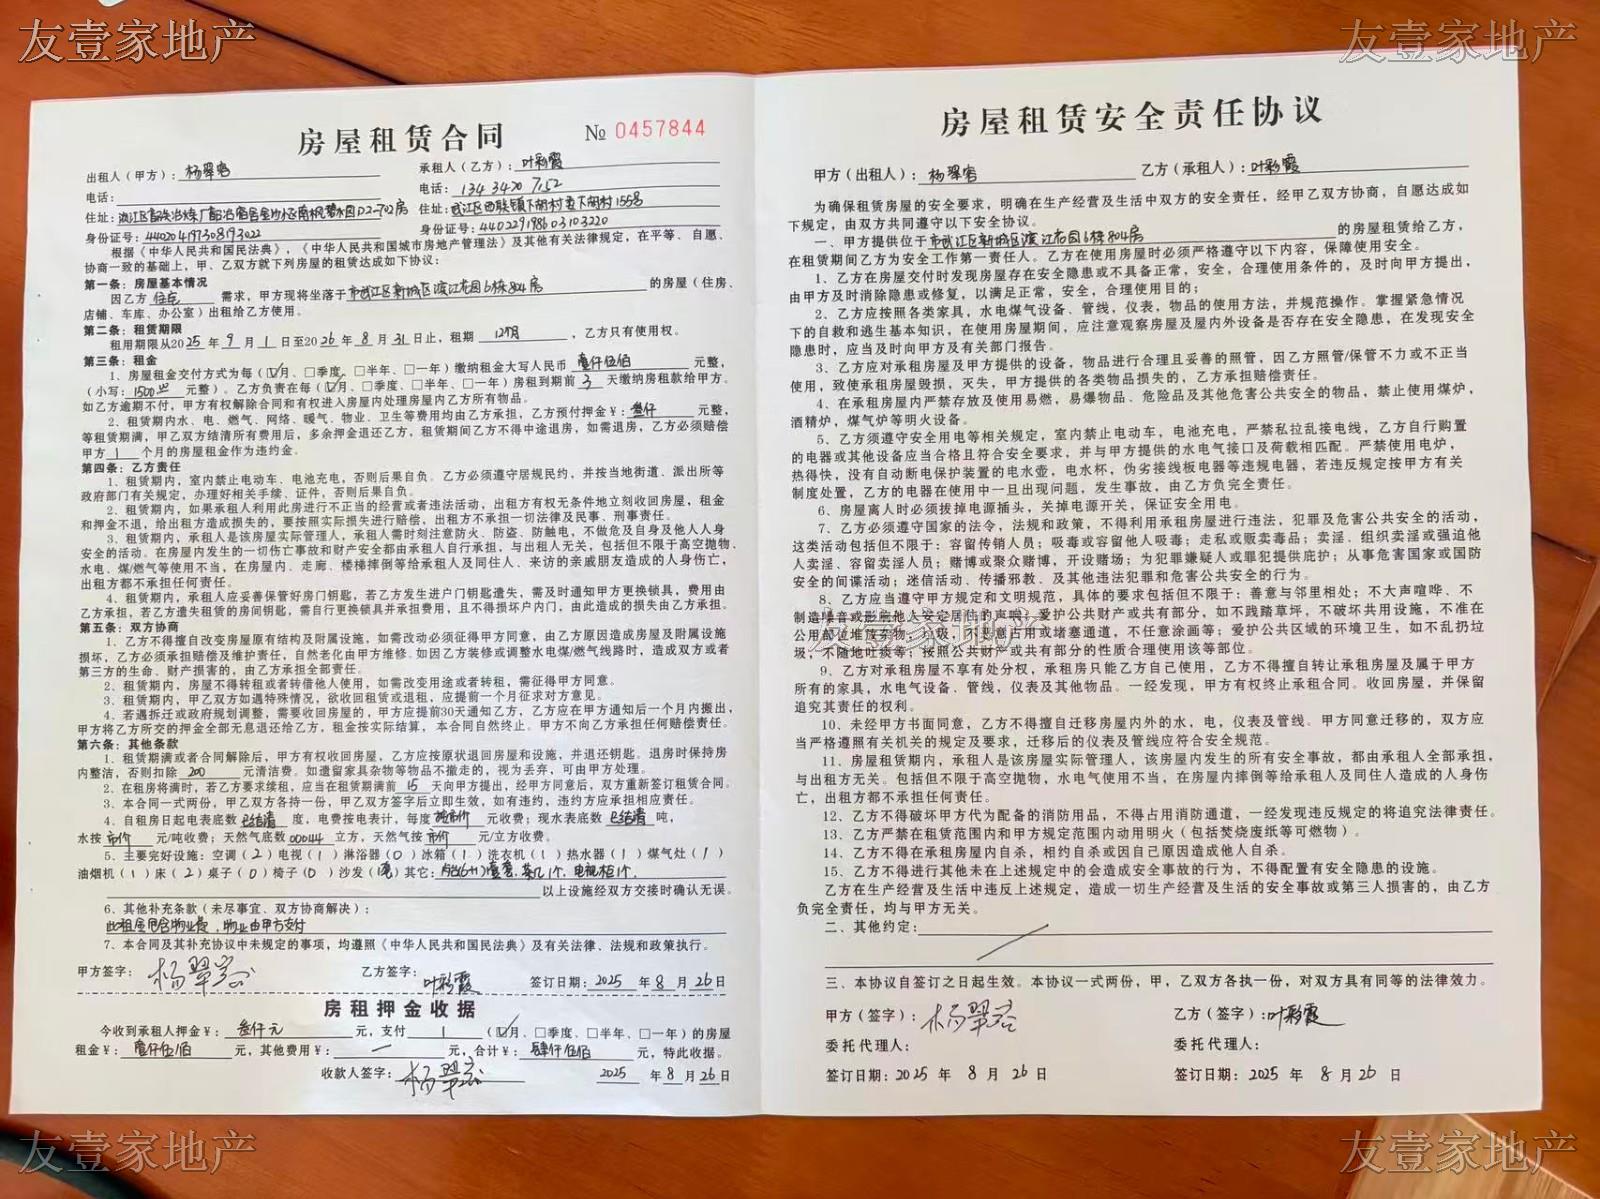 友壹家地产
友壹家地产
房屋租赁合同 № 0457844
出租人（甲方）：杨翠容 承租人（乙方）：叶彩霞
电话： 电话：134 3420 7152
住址：
住址：武江区西联镇下胡村委下胡村155号
身份证号：440204197308193022 身份证号：440229198603103220
根据《中华人民共和国民法典》，《中华人民共和国城市房地产管理法》及其他有关法律规定，在平等、自愿、
协商一致的基础上，甲、乙双方就下列房屋的租赁达成如下协议：
第一条：房屋基本情况
因乙方 住宅 需求，甲方现将坐落于 市武江区新城区滨江花园6栋804房 的房屋（住房、
店铺、车库、办公室）出租给乙方使用。
第二条：租赁期限
租用期限从2025年9月1日至2026年8月31日止，租期 12个月，乙方只有使用权。
第三条：租金
1、房屋租金交付方式为每（☑月、□季度、□半年、□一年）缴纳租金大写人民币 壹仟伍佰 元整，
（小写：1500.00 元整）。乙方负责在每（☑月、□季度、□半年、□一年）房租到期前 3 天缴纳房租款给甲方。
如乙方逾期不付，甲方有权解除合同和有权进入房屋内处理房屋内乙方所有物品。
2、租赁期内水、电、燃气、网络、暖气、物业、卫生等费用均由乙方承担，乙方预付押金￥：叁仟 元整，
等租赁期满，甲乙双方结清所有费用后，多余押金退还乙方，租赁期间乙方不得中途退房，如需退房，乙方必须赔偿
甲方 1 个月的房屋租金作为违约金。
第四条：乙方责任
1、租赁期内，室内禁止电动车、电池充电，否则后果自负。乙方必须遵守居规民约，并按当地街道、派出所等
政府部门有关规定，办理好相关手续、证件，否则后果自负。
2、租赁期内，如果承租人利用此房进行不正当的经营或者违法活动，出租方有权无条件地立刻收回房屋，租金
和押金不退，给出租方造成损失的，要按照实际损失进行赔偿，出租方不承担一切法律及民事、刑事责任。
3、租赁期内，承租人是该房屋实际管理人，承租人需时刻注意防火、防盗、防触电，不做危及自身及他人人身
安全的活动。在房屋内发生的一切伤亡事故和财产安全都由承租人自行承担，与出租人无关，包括但不限于高空抛物、
水电、煤/燃气等使用不当，在房屋内、走廊、楼梯摔倒等给承租人及同住人、来访的亲戚朋友造成的人身伤亡，
出租方都不承担任何责任。
4、租赁期内，承租人应妥善保管好房门钥匙，若乙方发生进户门钥匙遗失，需及时通知甲方更换锁具，费用由
乙方承担，若乙方遗失租赁的房间钥匙，需自行更换锁具并承担费用，且不得损坏户内门，由此造成的损失由乙方承担。
第五条：双方协商
1、乙方不得擅自改变房屋原有结构及附属设施，如需改动必须征得甲方同意，由乙方原因造成房屋及附属设施
损坏，乙方必须承担赔偿及维护责任，自然老化由甲方维修。如因乙方装修或调整水电煤/燃气线路时，造成双方或者
第三方的生命、财产损害的，由乙方承担全部责任。
2、租赁期内，房屋不得转租或者转借他人使用，如需改变用途或者转租，需征得甲方同意。
3、租赁期内，甲乙双方如遇特殊情况，欲收回租赁或退租，应提前一个月征求对方意见。
4、若遇拆迁或政府规划调整，需要收回房屋的，甲方应提前30天通知乙方，乙方应在甲方通知后一个月内搬出，
甲方将乙方所交的押金全部无息退还给乙方，租金按实际结算，本合同自然终止。甲方不向乙方承担任何赔偿责任。
第六条：其他条款
1、租赁期满或者合同解除后，甲方有权收回房屋，乙方应按原状退回房屋和设施，并退还钥匙。退房时保持房
内整洁，否则扣除 200 元清洁费。如遗留家具杂物等物品不搬走的，视为丢弃，可由甲方处理。
2、在租房将满时，若乙方要求续租，应当在租赁期满前 15 天向甲方提出，经甲方同意后，双方重新签订租赁合同。
3、本合同一式两份，甲乙双方各持一份，甲乙双方签字后立即生效，如有违约，违约方应承担相应责任。
4、自租房日起电表底数 已结清 度，电费按电表计，每度 按市价 元收费；现水表底数 已结清 吨，
水按 市价 元/吨收费；天然气底数 000144 立方，天然气按 市价 元/立方收费。
5、主要完好设施：空调（2）电视（1）淋浴器（0）冰箱（1）洗衣机（1）热水器（1）煤气灶（1）
油烟机（1）床（2）桌子（0）椅子（0）沙发（1套）其它： 茶几1个、电视柜1个.
以上设施经双方交接时确认无误。
6、其他补充条款（未尽事宜、双方协商解决）：
此租金包含物业费，物业由甲方支付
7、本合同及其补充协议中未规定的事项，均遵照《中华人民共和国民法典》及有关法律、法规和政策执行。
甲方签字：杨翠容 乙方签字：叶彩霞 签订日期：2025 年 8 月 26 日
房租押金收据
今收到承租人押金￥：叁仟元 元，支付 1 （☑月、□季度、□半年、□一年）的房屋
租金￥：壹仟伍佰 元，其他费用￥：— 元，合计￥：肆仟伍佰 元，特此收据。
收款人签字：杨翠容 2025 年 8 月 26 日
房屋租赁安全责任协议
甲方（出租人）：杨翠容 乙方（承租人）：叶彩霞
为确保租赁房屋的安全要求，明确在生产经营及生活中双方的安全责任，经甲乙双方协商，自愿达成如
下规定，由双方共同遵守以下安全协议。
一、甲方提供位于 市武江区新城区滨江花园6栋804房 的房屋租赁给乙方，
在租赁期间乙方为安全工作第一责任人。乙方在使用房屋时必须严格遵守以下内容，保障使用安全。
1、乙方在房屋交付时发现房屋存在安全隐患或不具备正常，安全，合理使用条件的，及时向甲方提出，
由甲方及时消除隐患或修复，以满足正常，安全，合理使用目的；
2、乙方应按照各类家具，水电煤气设备、管线，仪表，物品的使用方法，并规范操作。掌握紧急情况
下的自救和逃生基本知识，在使用房屋期间，应注意观察房屋及屋内外设备是否存在安全隐患，在发现安全
隐患时，应当及时向甲方及有关部门报告。
3、乙方应对承租房屋及甲方提供的设备，物品进行合理且妥善的照管，因乙方照管/保管不力或不正当
使用，致使承租房屋毁损，灭失，甲方提供的各类物品损失的，乙方承担赔偿责任。
4、在承租房屋内严禁存放及使用易燃，易爆物品、危险品及其他危害公共安全的物品，禁止使用煤炉，
酒精炉，煤气炉等明火设备。
5、乙方须遵守安全用电等相关规定，室内禁止电动车，电池充电，严禁私拉乱接电线，乙方自行购置
的电器或其他设备应当合格且符合安全要求，并与甲方提供的水电气接口及荷载相匹配。严禁使用电炉，
热得快，没有自动断电保护装置的电水壶，电水杯，伪劣接线板电器等违规电器，若违反规定按甲方有关
制度处置，乙方的电器在使用中一旦出现问题，发生事故，由乙方负完全责任。
6、房屋离人时必须拔掉电源插头，关掉电源开关，保证安全用电。
7、乙方必须遵守国家的法令，法规和政策，不得利用承租房屋进行违法，犯罪及危害公共安全的活动，
这类活动包括但不限于：容留传销人员；吸毒或容留他人吸毒；走私或贩卖毒品；卖淫、组织卖淫或强迫他
人卖淫、容留卖淫人员；赌博或聚众赌博，开设赌场；为犯罪嫌疑人或罪犯提供庇护；从事危害国家或国防
安全的间谍活动；迷信活动、传播邪教、及其他违法犯罪和危害公共安全的行为。
8、乙方应当遵守甲方规定和文明规范，具体的要求包括但不限于：善意与邻里相处；不大声喧哗、不
制造噪音或影响他人安定居住的声响；爱护公共财产或共有部分，如不践踏草坪，不破坏共用设施，不准在
公用部位堆放杂物、垃圾，不恶意占用或堵塞通道，不任意涂画等；爱护公共区域的环境卫生，如不乱扔垃
圾，不随地吐痰等；按照公共财产或共有部分的性质合理使用该等部位。
友壹家地产
9、乙方对承租房屋不享有处分权，承租房只能乙方自己使用，乙方不得擅自转让承租房屋及属于甲方
所有的家具，水电气设备、管线，仪表及其他物品。一经发现，甲方有权终止承租合同。收回房屋，并保留
追究其责任的权利。
10、未经甲方书面同意，乙方不得擅自迁移房屋内外的水，电，仪表及管线。甲方同意迁移的，双方应
当严格遵照有关机关的规定及要求，迁移后的仪表及管线应符合安全规范。
11、房屋租赁期内，承租人是该房屋实际管理人，该房屋内发生的所有安全事故，都由承租人全部承担，
与出租方无关。包括但不限于高空抛物，水电气使用不当，在房屋内摔倒等给承租人及同住人造成的人身伤
亡，出租方都不承担任何责任。
12、乙方不得破坏甲方代为配备的消防用品，不得占用消防通道，一经发现违反规定的将追究法律责任。
13、乙方严禁在租赁范围内和甲方规定范围内动用明火（包括焚烧废纸等可燃物）。
14、乙方不得在承租房屋内自杀，相约自杀或因自己原因造成他人自杀。
15、乙方不得进行其他未在上述规定中的会造成安全事故的行为，不得配置有安全隐患的设施。
乙方在生产经营及生活中违反上述规定，造成一切生产经营及生活的安全事故或第三人损害的，由乙方
负完全责任，均与甲方无关。
二、其他约定：
三、本协议自签订之日起生效。本协议一式两份，甲，乙双方各执一份，对双方具有同等的法律效力。
甲方（签字）：杨翠容 乙方（签字）：叶彩霞
委托代理人： 委托代理人：
签订日期：2025 年 8 月 26 日 签订日期：2025 年 8 月 26 日
友壹家地产
友壹家地产